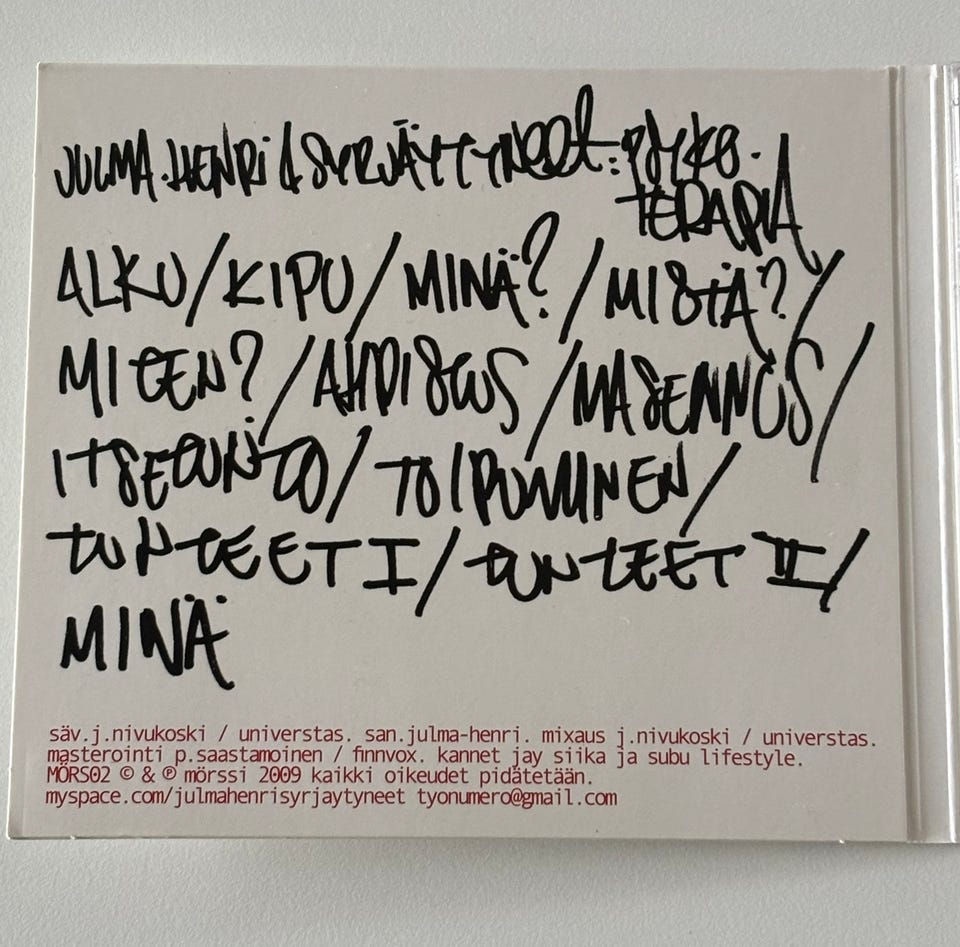 JULMA-HENRi & SYRJÄYTYNEET: PSYKO-
TERAPIA
ALKU/KIPU/MINÄ?/MISTÄ?/
MITEN?/AHDISTUS/MASENNUS/
ITSETUNTO/TOIPUMINEN/
TUNTEET I/TUNTEET II/
MINÄ
säv.j.nivukoski / universtas. san.julma-henri. mixaus j.nivukoski / universtas.
masterointi p.saastamoinen / finnvox. kannet jay siika ja subu lifestyle.
MÖRS02 © & ℗ mörssi 2009 kaikki oikeudet pidätetään.
myspace.com/julmahenrisyrjaytyneet tyonumero@gmail.com